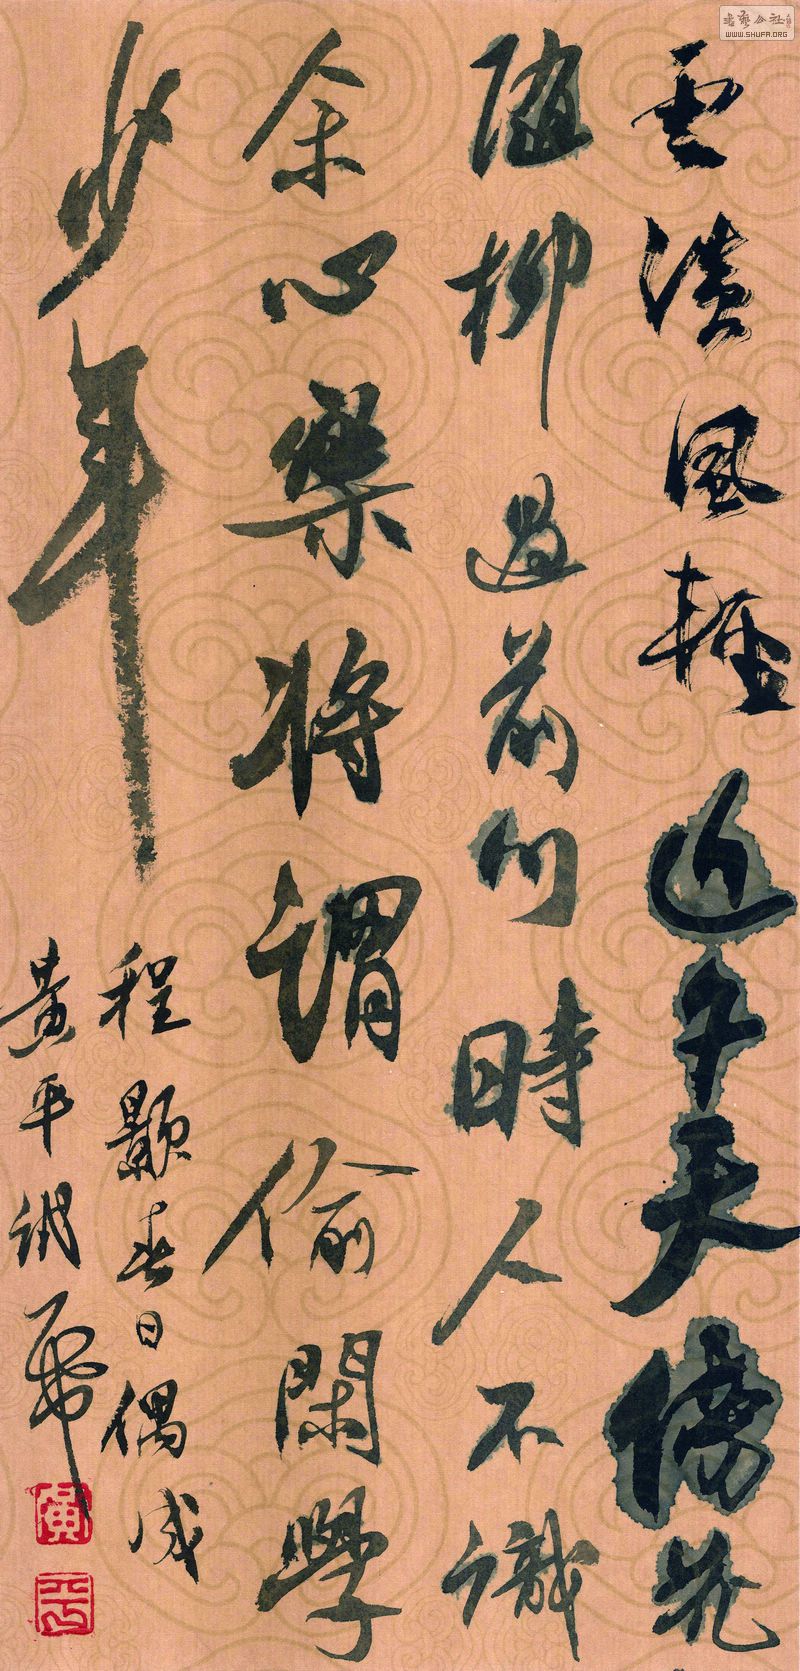 書藝公社
WWW.SHUFA.ORG
雲淡風輕近午天傍花
隨柳過前川時人不識
余心樂將謂偷閑學
少年
程顥春日偶成
黃平
黃
平